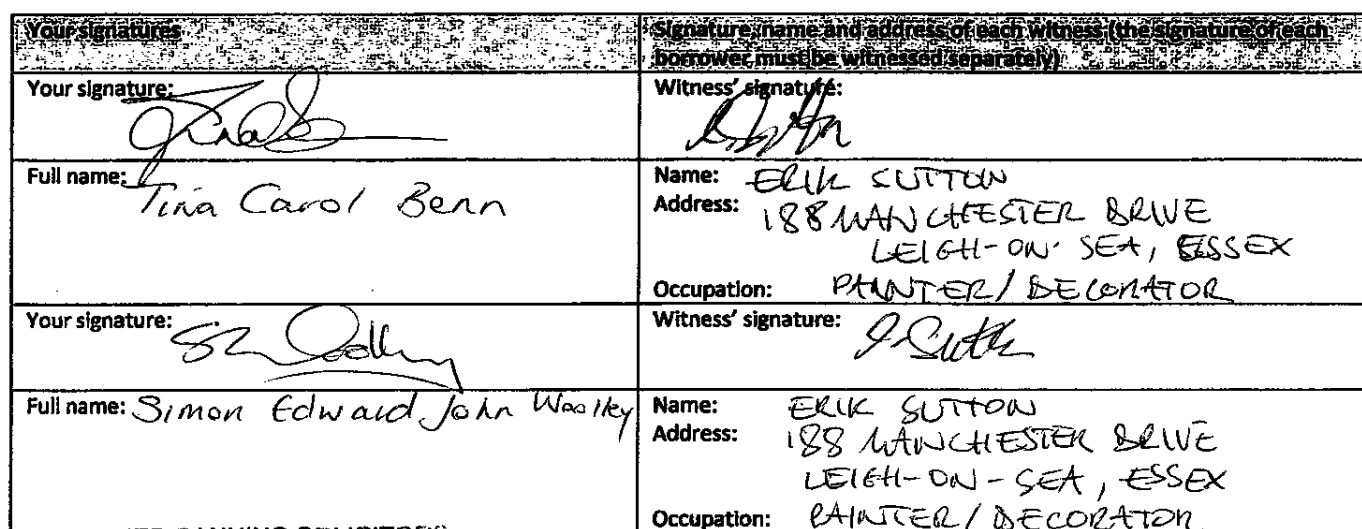 Your signatures
Signature, name and address of each witness (the signature of each
borrower must be witnessed separately)
Your signature:
Witness' signature:
Full name: Tina Carol Benn
Name: ERIK SUTTON
Address: 188 MANCHESTER DRIVE
LEIGH-ON-SEA, ESSEX
Occupation: PAINTER/DECORATOR
Your signature:
Witness' signature:
Full name: Simon Edward John Woolley
Name: ERIK SUTTON
Address: 188 MANCHESTER DRIVE
LEIGH-ON-SEA, ESSEX
Occupation: PAINTER/DECORATOR